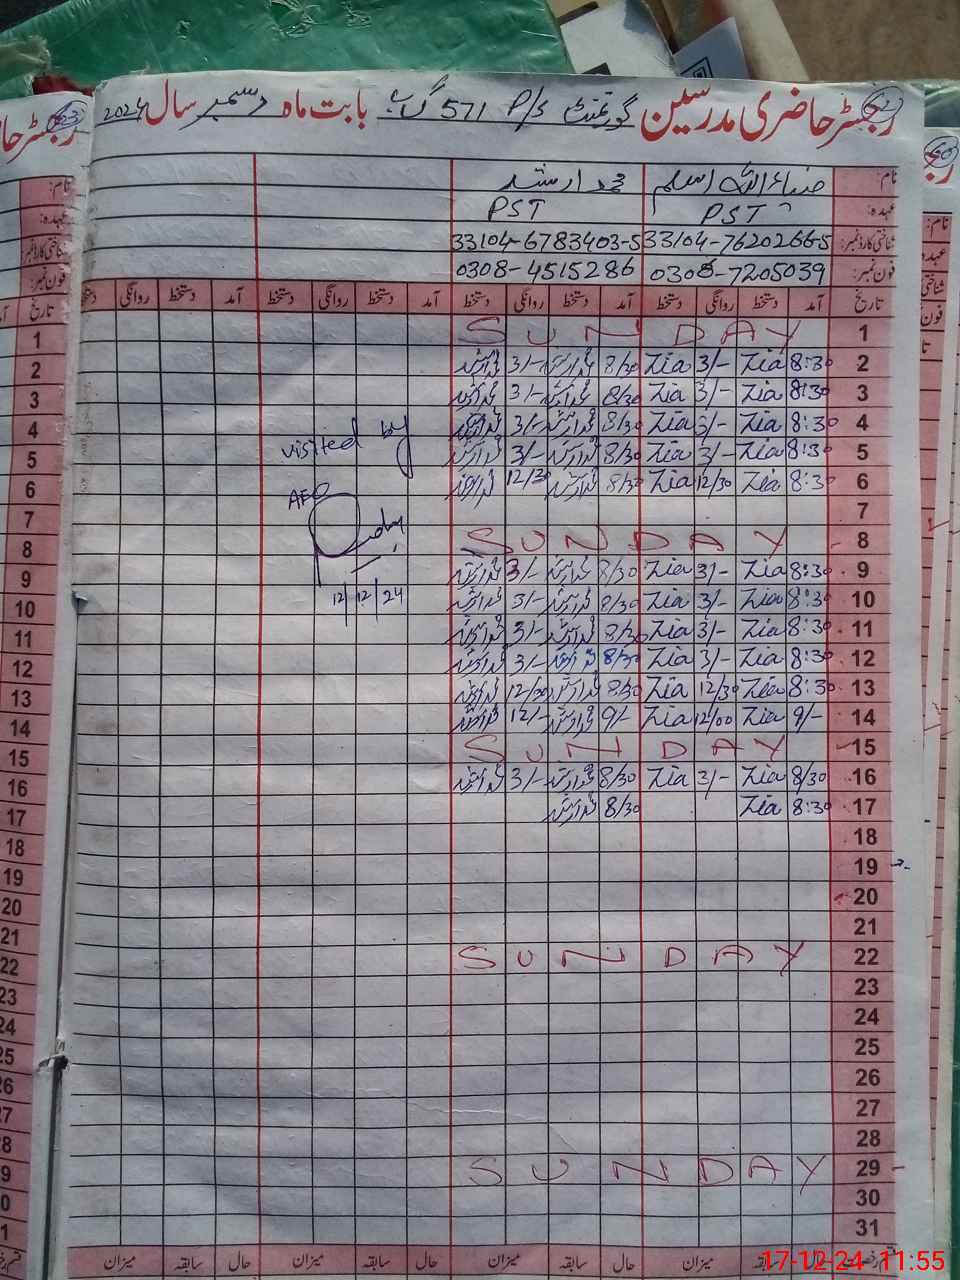 رجسٹر حاضری مدرسین گورنمنٹ P/S 571 گ ب بابت ماہ دسمبر سال 2024
نام: ضیاء اللہ اسلم محمد ارشد
عہدہ: PST PST
شناختی کارڈ نمبر: 33104-7620266-5 33104-6783403-5
فون نمبر: 0308-7205039 0308-4515286
تاریخ آمد دستخط روانگی دستخط آمد دستخط روانگی دستخط آمد دستخط روانگی دستخط آمد دستخط روانگی دستخط
1 SUNDAY 1
2 8:30 Zia 3/- Zia 8/30 محمد ارشد 3/- محمد ارشد 2
3 8:30 Zia 3/- Zia 8/30 محمد ارشد 3/- محمد ارشد 3
4 8:30 Zia 3/- Zia 8/30 محمد ارشد 3/- محمد ارشد 4
visited by
5 8:30 Zia 3/- Zia 8/30 محمد ارشد 3/- محمد ارشد 5
6 8:30 Zia 12/30 Zia 8/30 محمد ارشد 12/30 محمد ارشد 6
AEO
7 7
8 SUNDAY 8
9 8:30 Zia 3/- Zia 8/30 محمد ارشد 3/- محمد ارشد 9
10 8:30 Zia 3/- Zia 8/30 محمد ارشد 3/- محمد ارشد 10
12/12/24
11 8:30 Zia 3/- Zia 8/30 محمد ارشد 3/- محمد ارشد 11
12 8:30 Zia 3/- Zia 8/30 محمد ارشد 3/- محمد ارشد 12
13 8:30 Zia 12/30 Zia 8/30 محمد ارشد 12/30 محمد ارشد 13
14 9/- Zia 12/00 Zia 9/- محمد ارشد 12/- محمد ارشد 14
15 SUNDAY 15
16 8/30 Zia 3/- Zia 8/30 محمد ارشد 3/- محمد ارشد 16
17 8:30 Zia 8/30 محمد ارشد 17
18 18
19 19
20 20
21 21
22 SUNDAY 22
23 23
24 24
25 25
26 26
27 27
28 28
29 SUNDAY 29
30 30
31 31
حال سابقہ میزان حال سابقہ میزان حال سابقہ میزان
17-12-24 11:55